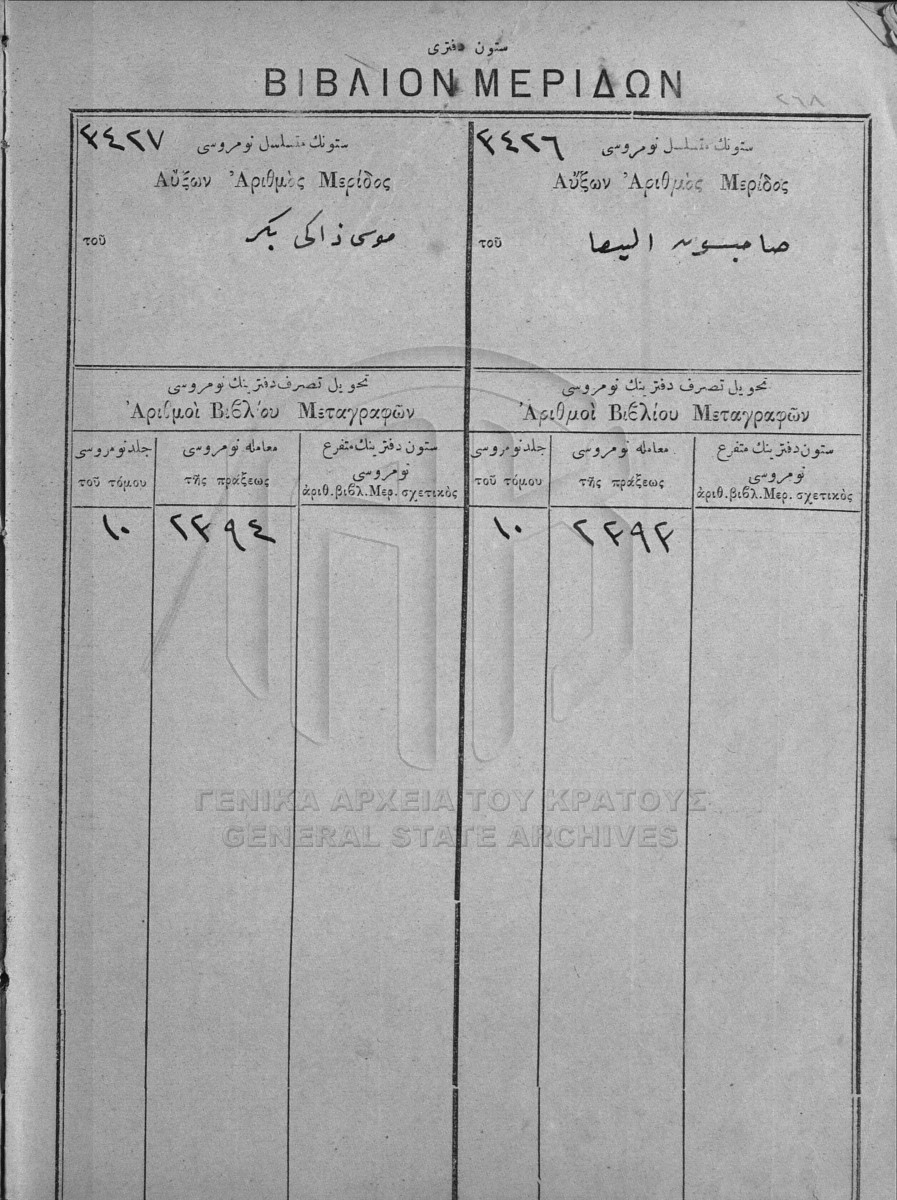 ستون دفتری
ΒΙΒΛΙΟΝ ΜΕΡΙΔΩΝ
٢٦٨
ستونك متسلسل نومروسی ٣٤٢٦
Αὔξων Ἀριθμὸς Μερίδος
τοῦ
تحویل تصرف دفترینك نومروسی
Ἀριθμοὶ Βιβλίου Μεταγραφῶν
ستون دفترینك متفرع نومروسی
ἀριθ. βιβλ. Μερ. σχετικὸς
معامله نومروسی
τῆς πράξεως
جلد نومروسی
τοῦ τόμου
٢٣٩٣
١٠
ستونك متسلسل نومروسی ٣٤٢٧
Αὔξων Ἀριθμὸς Μερίδος
τοῦ موسی ذاکی بکر
تحویل تصرف دفترینك نومروسی
Ἀριθμοὶ Βιβλίου Μεταγραφῶν
ستون دفترینك متفرع نومروسی
ἀριθ. βιβλ. Μερ. σχετικὸς
معامله نومروسی
τῆς πράξεως
جلد نومروسی
τοῦ τόμου
٢٣٩٤
١٠
ΓΕΝΙΚΑ ΑΡΧΕΙΑ ΤΟΥ ΚΡΑΤΟΥΣ
GENERAL STATE ARCHIVES